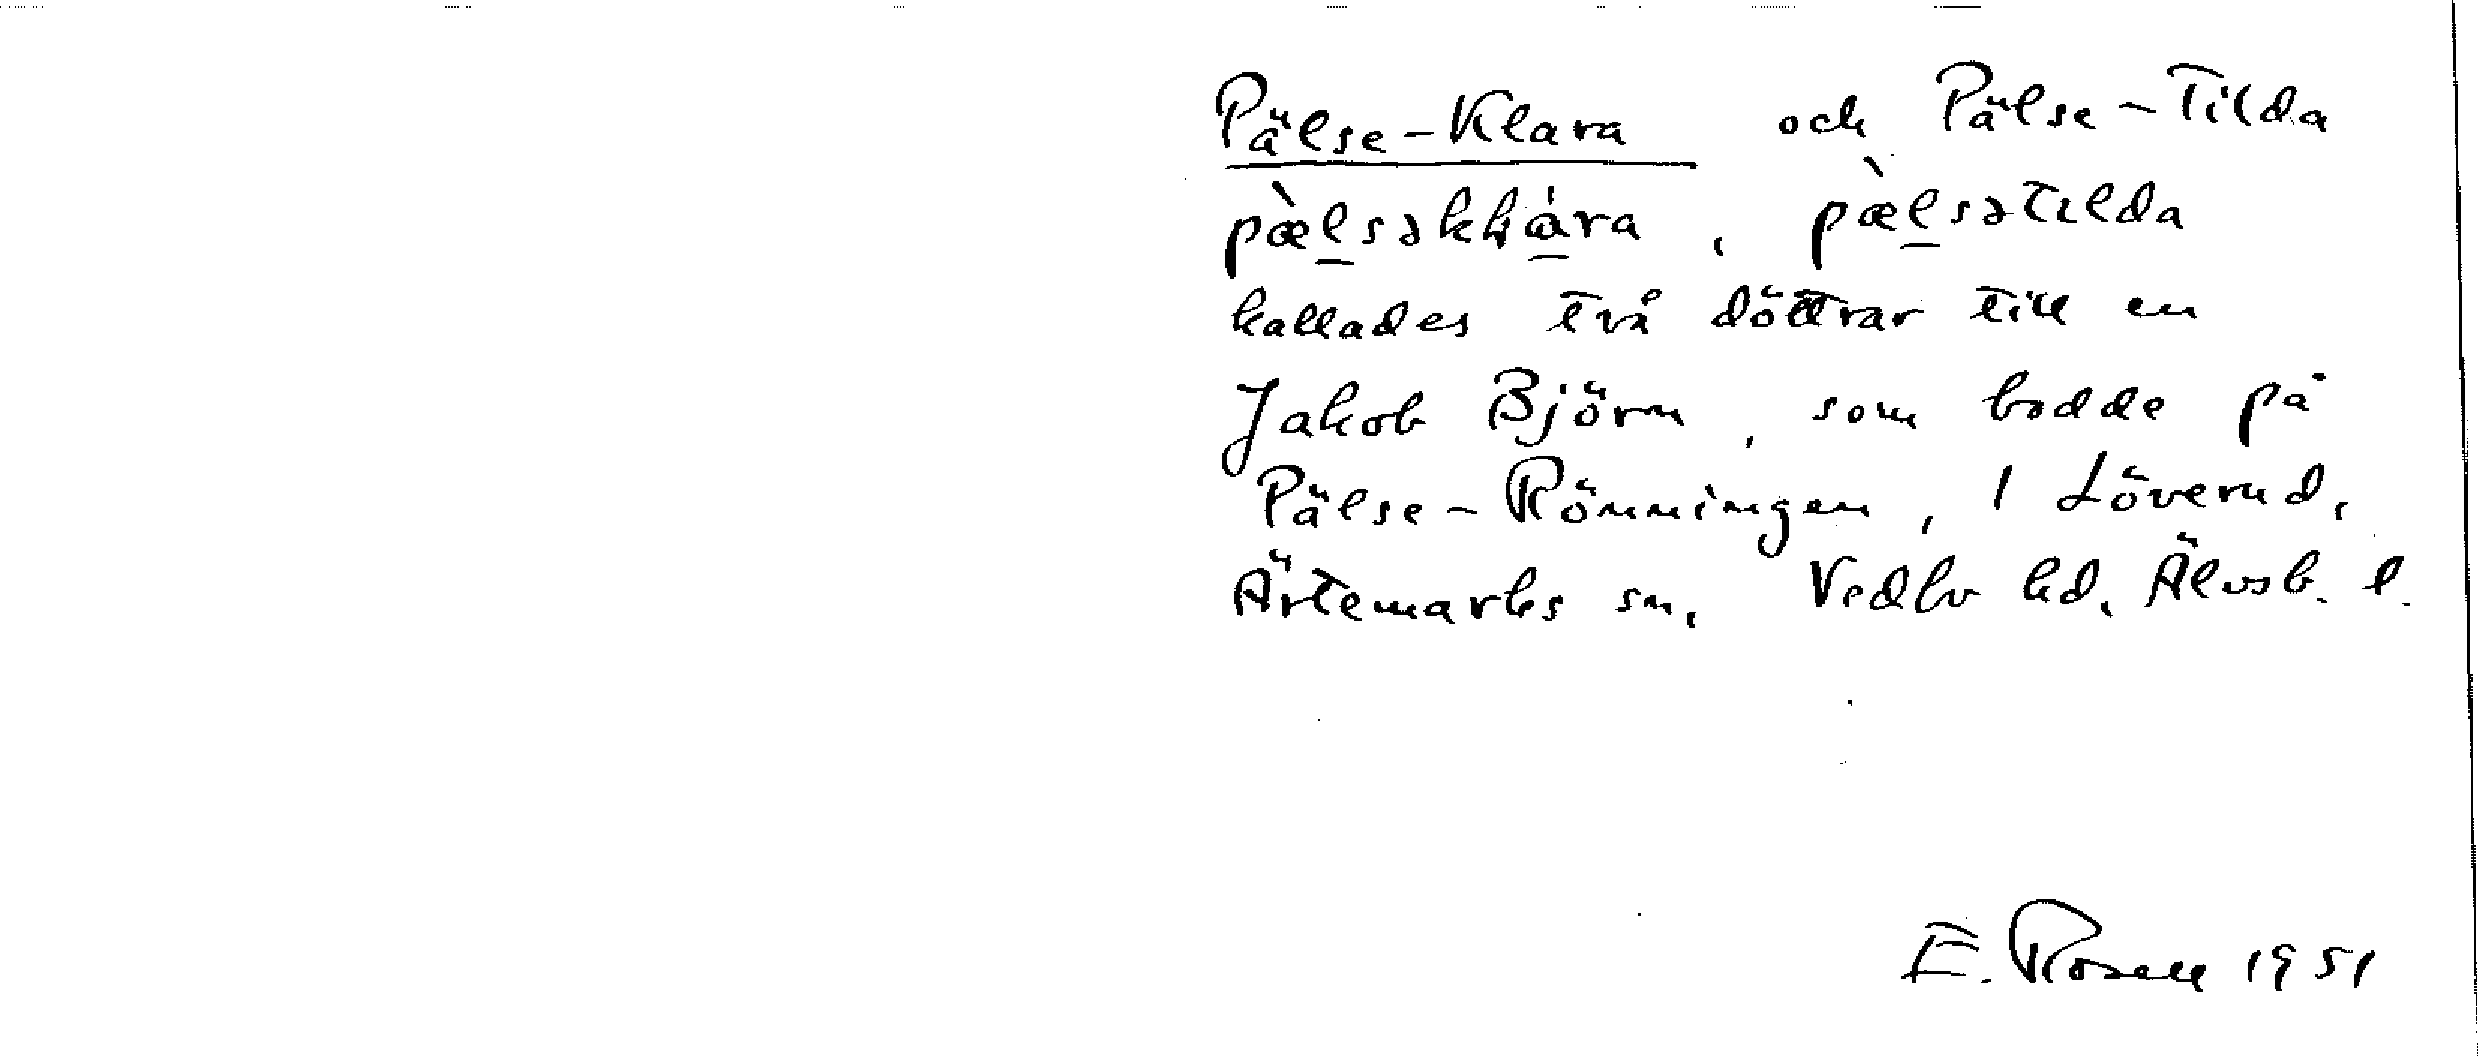 Pälse-Klara och Pälse-Tilda
pæ̀l̲səkɫá̲ra, pæ̀l̲sətɪlda
kallades två döttrar till en
Jakob Björn, som bodde på
Pälse-Rönningen, 1 Löverud,
Ärtemarks sn, Vedbo hd, Älvsb. l.
E. Rosell 1951